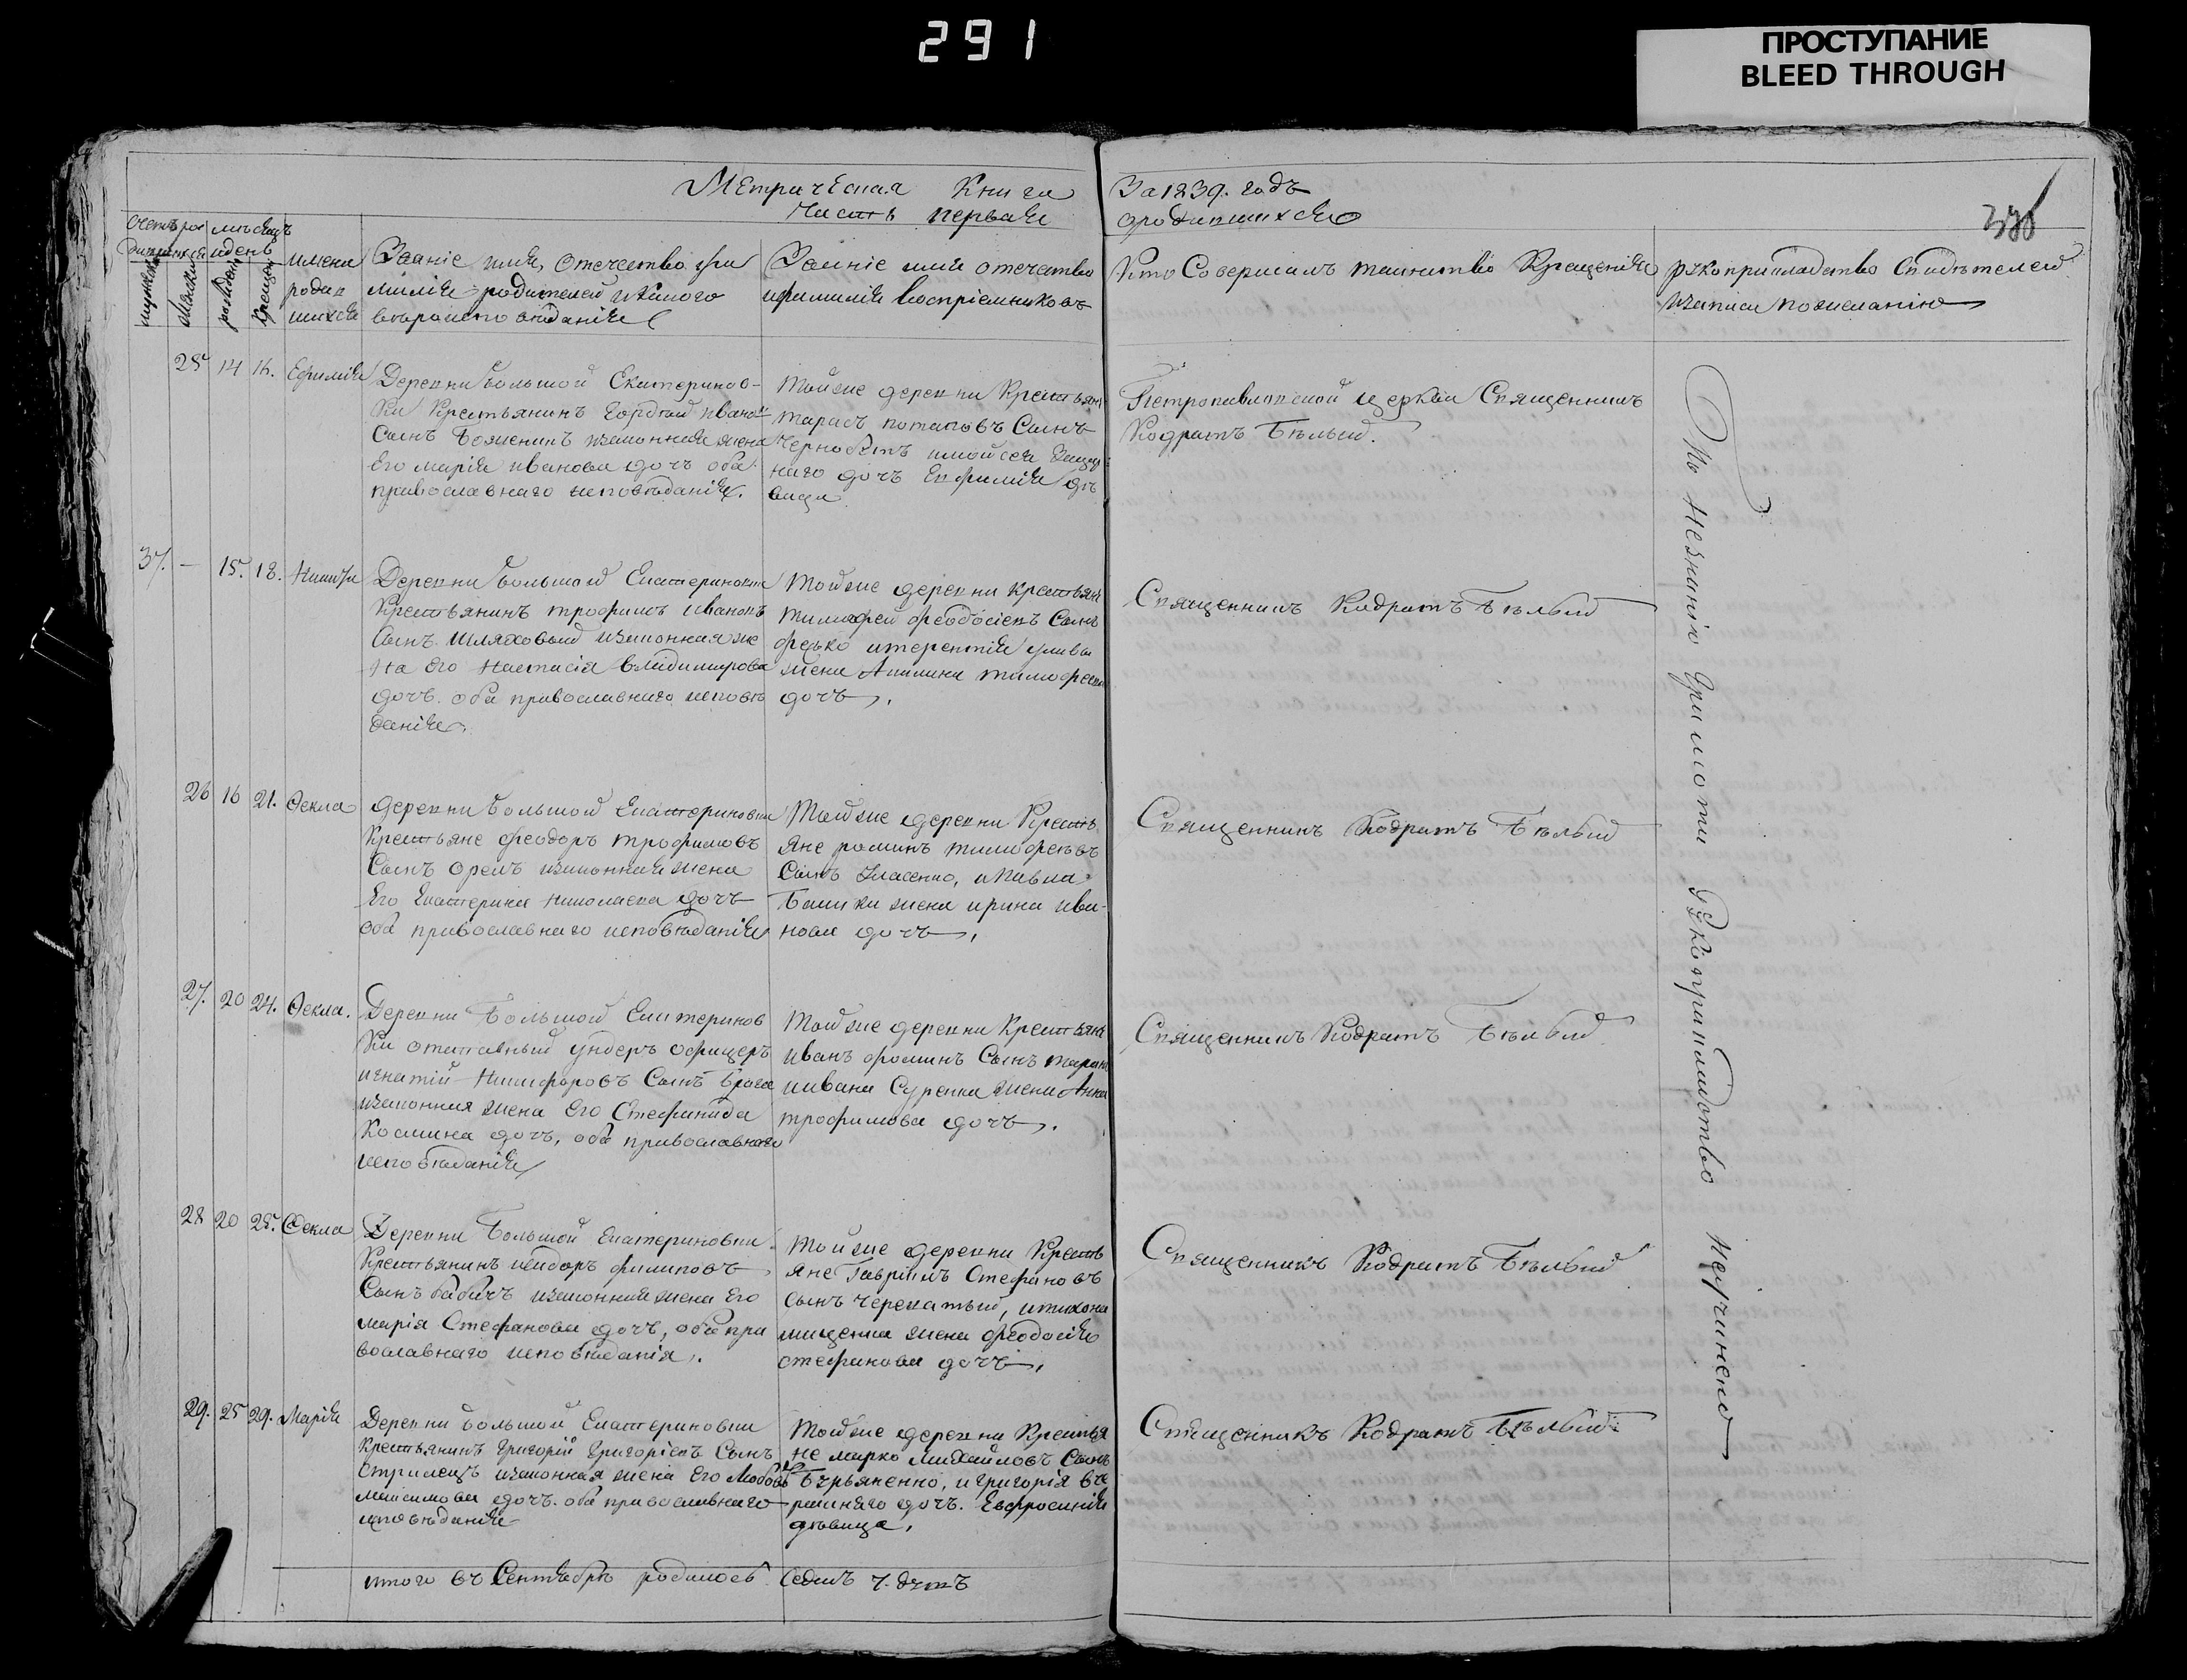 291
ПРОСТУПАНИЕ
BLEED THROUGH
Метрическая Книга За 1839. годъ
Часть первая о родившихся
Счетъ ро мѣсяцъ
дившихся и день
мужеска
Женска
рожден
Крещен
имена
родив
шихся
Званіе имя, Отечество, фа
миліе родителей и какого
вѣроисповѣданія
Званіе имя отечество
и фамилія воспріемниковъ
Кто Совершалъ таинство Крещенія
рукоприкладство Свидѣтелей
записи по желанію
25 14 16. Ефимія
Деревни большой Екатеринов-
ки Крестьянинъ Гордѣй Иванов
Сынъ законная жена
Его марія иванова дочь оба
православнаго исповѣданія.
Той же деревни Крестьян
тарасъ потаповъ Сынъ
дочь Евфимія дѣ
вица
Петропавловской церкви Священникъ
Кодратъ Бѣлый.
37. — 15. 18. Никита
Деревни большой Екатериновки
Крестьянинъ трофимъ Ивановъ
Сынъ Шляховый и законная же
на его Настасія владимирова
дочь. оба православнаго исповѣ
данія.
Той же деревни крестьяне
тимофей феодосіевъ Сынъ
и терентія
жена Акилина тимофеева
дочь.
Священникъ Кодратъ Бѣлый
26 16 21. Ѳекла
деревни большой Екатериновки
Крестьяне феодоръ трофимовъ
Сынъ Орелъ и законная жена
Его Екатерина Николаева дочь
оба православнаго исповѣданія
Той же деревни Кресть
яне романъ тимофеевъ
Сынъ Власенко, и павла
жена ирина ива-
нова дочь.
Священникъ Кодратъ Бѣлый
27. 20 24. Ѳекла.
Деревни Большой Екатеринов
ки отставный ундеръ офицеръ
игнатій Никифоровъ Сынъ
и законная жена Его Стефанида
Космина дочь, оба православнаго
исповѣданія
Той же деревни Крестьяне
Иванъ фоминъ Сынъ
и ивана жена Анна
трофимова дочь.
Священникъ Кодратъ Бѣлый
28 20 25. Ѳекла
Деревни Большой Екатериновки
Крестьянинъ исидоръ филиповъ
Сынъ бабичъ и законная жена Его
марія Стефанова дочь, оба пра
вославнаго исповѣданія.
Той же деревни Кресть
яне Гавріилъ Стефановъ
сынъ и тихона
жена феодосія
стефанова дочь.
Священникъ Кодратъ Бѣлый
29. 25 29. Марія
Деревни большой Екатериновки
Крестьянинъ Григорій Григоріевъ Сынъ
Стрилецъ и законная жена Его Любовь
максимова дочь. оба православнаго
исповѣданія
Той же деревни Крестья
не марко Михайловъ Сынъ
Бурьяненко, и григорія
дочь. Евфросинія
дѣвица.
Священникъ Кодратъ Бѣлый
По Незнанію Грамоты Рукоприкладство Неучинено
итого въ Сентябрѣ родилось Седмъ 7. дѣтъ